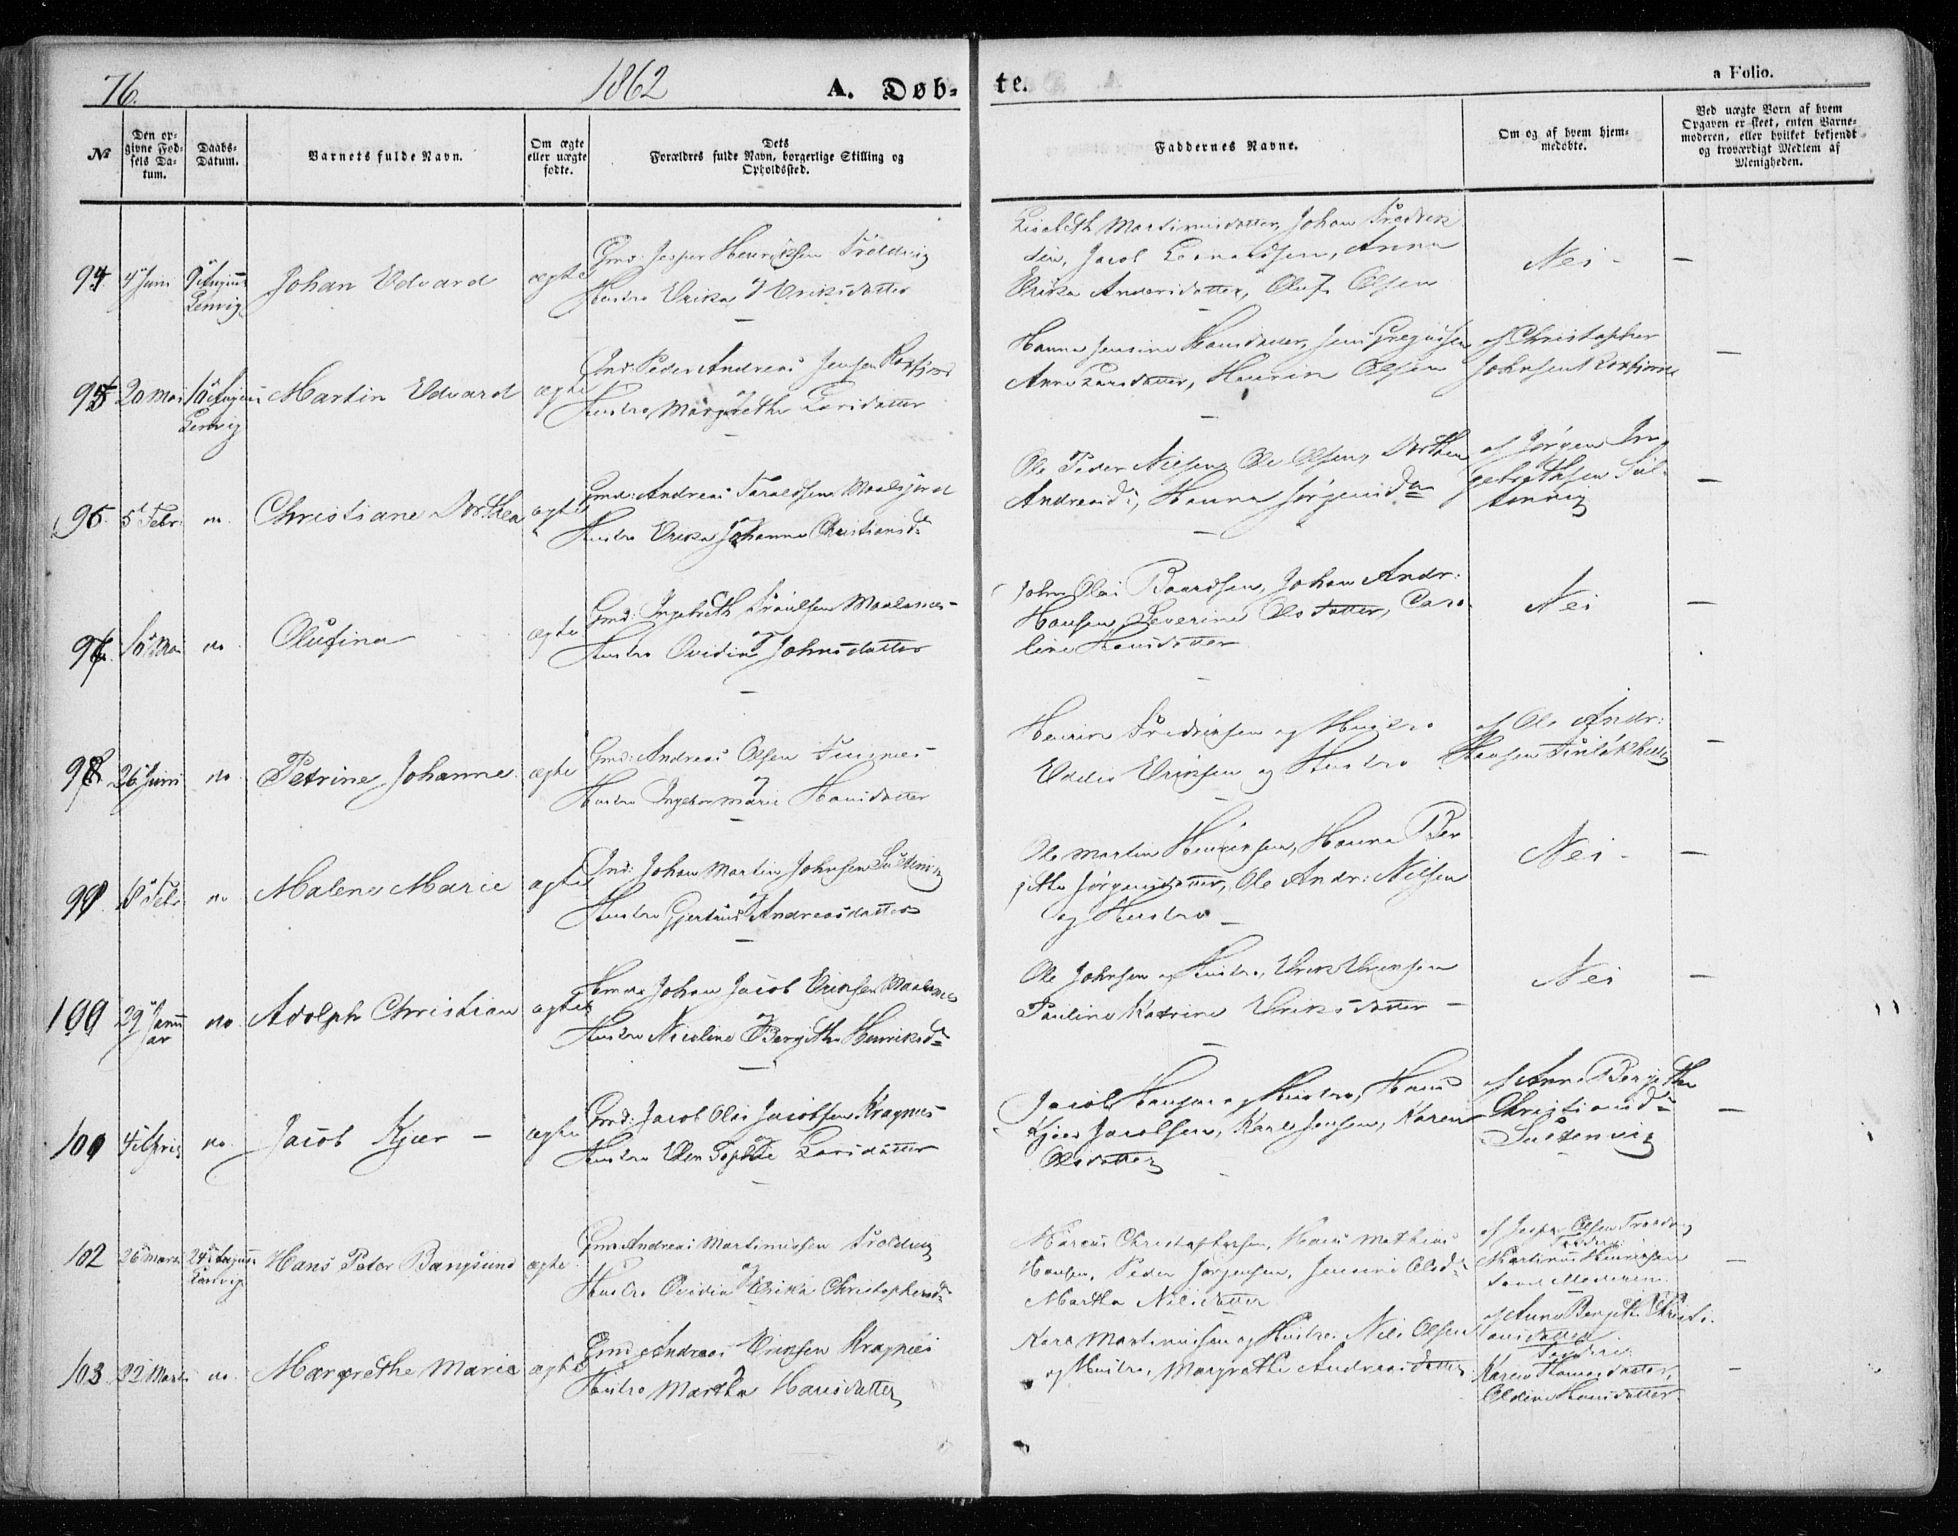 76.
1862
A. Døb-
te.
a Folio.
No
Den op-
givne Fød-
sels Da-
tum.
Daabs-
Datum.
Barnets fulde Navn.
Om ægte
eller uægte
fødte.
Dets
Forældres fulde Navn, borgerlige Stilling og
Opholdssted.
Faddernes Navne.
Om og af hvem hjem-
medøbte.
Ved uægte Born af hvem
Opgaven er skeet, enten Barne-
moderen, eller hvilket bekjendt
og troværdigt Medlem af
Menigheden.
94 4 Juni 9 August
Lenvig
Johan Edvard
ægte
Gmd. Jesper Henriksen Troldvig
og
Hustro Erika Eriksdatter
Lisabeth Martinusdatter, Johan Fredrik
Jacob Leonardsen, Anna
Erika Andersdatter, Oluf Olsen
Nei -
95 20 Mai 10 August
Lenvig
Martin Edvard
ægte
Gmd. Peder Andreas Jensen Roxfjord
og
Hustro Margrethe Larsdatter
Hanna Jensine Hansdatter, Jens Gregusen
Anne Larsdatter, Henrik Olsen
af Christopher
Johnsen Roxfjord
96. 5 Febr: do. Christiane Dorthea
ægte
Gmd: Andreas Taraldsen Maalsjord
og
Hustro Erika Johanna Christiansd
Ole Peder Nilsen, Ole Olsen, Dorthea
Andreasd:, Hanna Jørgensd
af Jørgen In-
gebrethsen Sul-
tenvig
97. 10 Mai do. Olufina
ægte
Gmd: Ingebreth Troulsen Maalsnes
og
Hustro Ovidia Johnsdatter
John Olai Baardsen, Johan Andr:
Hansen, Severine Olsdatter, Caro-
line Hansdatter
Nei
98 26 Juni do. Petrine Johanne.
ægte
Gmd: Andreas Olsen
og
Hustro Ingebor Marie Hansdatter
Henrik Fredriksen og Hustro
Eriksen og Hustro
af Ole Andr:
Hansen
99. 18 Febr do Malene Marie
ægte
Gmd: Johan Martin Johnsen Sultenvig
og
Hustro Gjertrud Andreasdatter
Ole Martin Henriksen, Hanna Ber-
gitte Jørgensdatter, Ole Andr: Nilsen
og Hustro -
Nei -
100 29 Janu
ar
do. Adolph Christian
ægte
Johan Jacob Eriksen Maalsnes
og
Hustro Nicoline Bergitha Henriksd
Ole Johnsen og Hustro, Erik Eriksen
Pauline Katrine Eriksdatter -
Nei
101 4 April do. Jacob Kjær -
ægte
Gmd: Jacob Olai Jacobsen Kragnes
og
Hustro Elen Sophie Larsdatter
Jacob Hansen og Hustro, Hans
Kjær Jacobsen, Karl Jensen, Karen
Olsdatter
af Anne Bergitha
Christiansd
Sultenvig
102 26 Marts 24 August
Lenvig
Hans Peter Bangsund
ægte
Gmd Andreas Martinussen Troldvig
og
Hustro Ovidia Erika Christophersd
Marcus Christophersen, Hans Mathias
Hansen, Peder Jørgensen, Jensine Olsd
Martha Nilsdatter
af Jesper Olsen Troldvig
Faddere:
Martinus Henriksen
samt Moderen
103 22 Marts do. Margrethe Marie
ægte
Gmd Andreas Eriksen Kragnes
og
Hustro Martha Hansdatter
Karl Martinussen og Hustro, Nils Olsen
og Hustro, Margrethe Andreasdatter
af Anne Bergitha Christi-
ansdatter
Faddere:
Karen Hansdatter,
Oldine Hansdatter